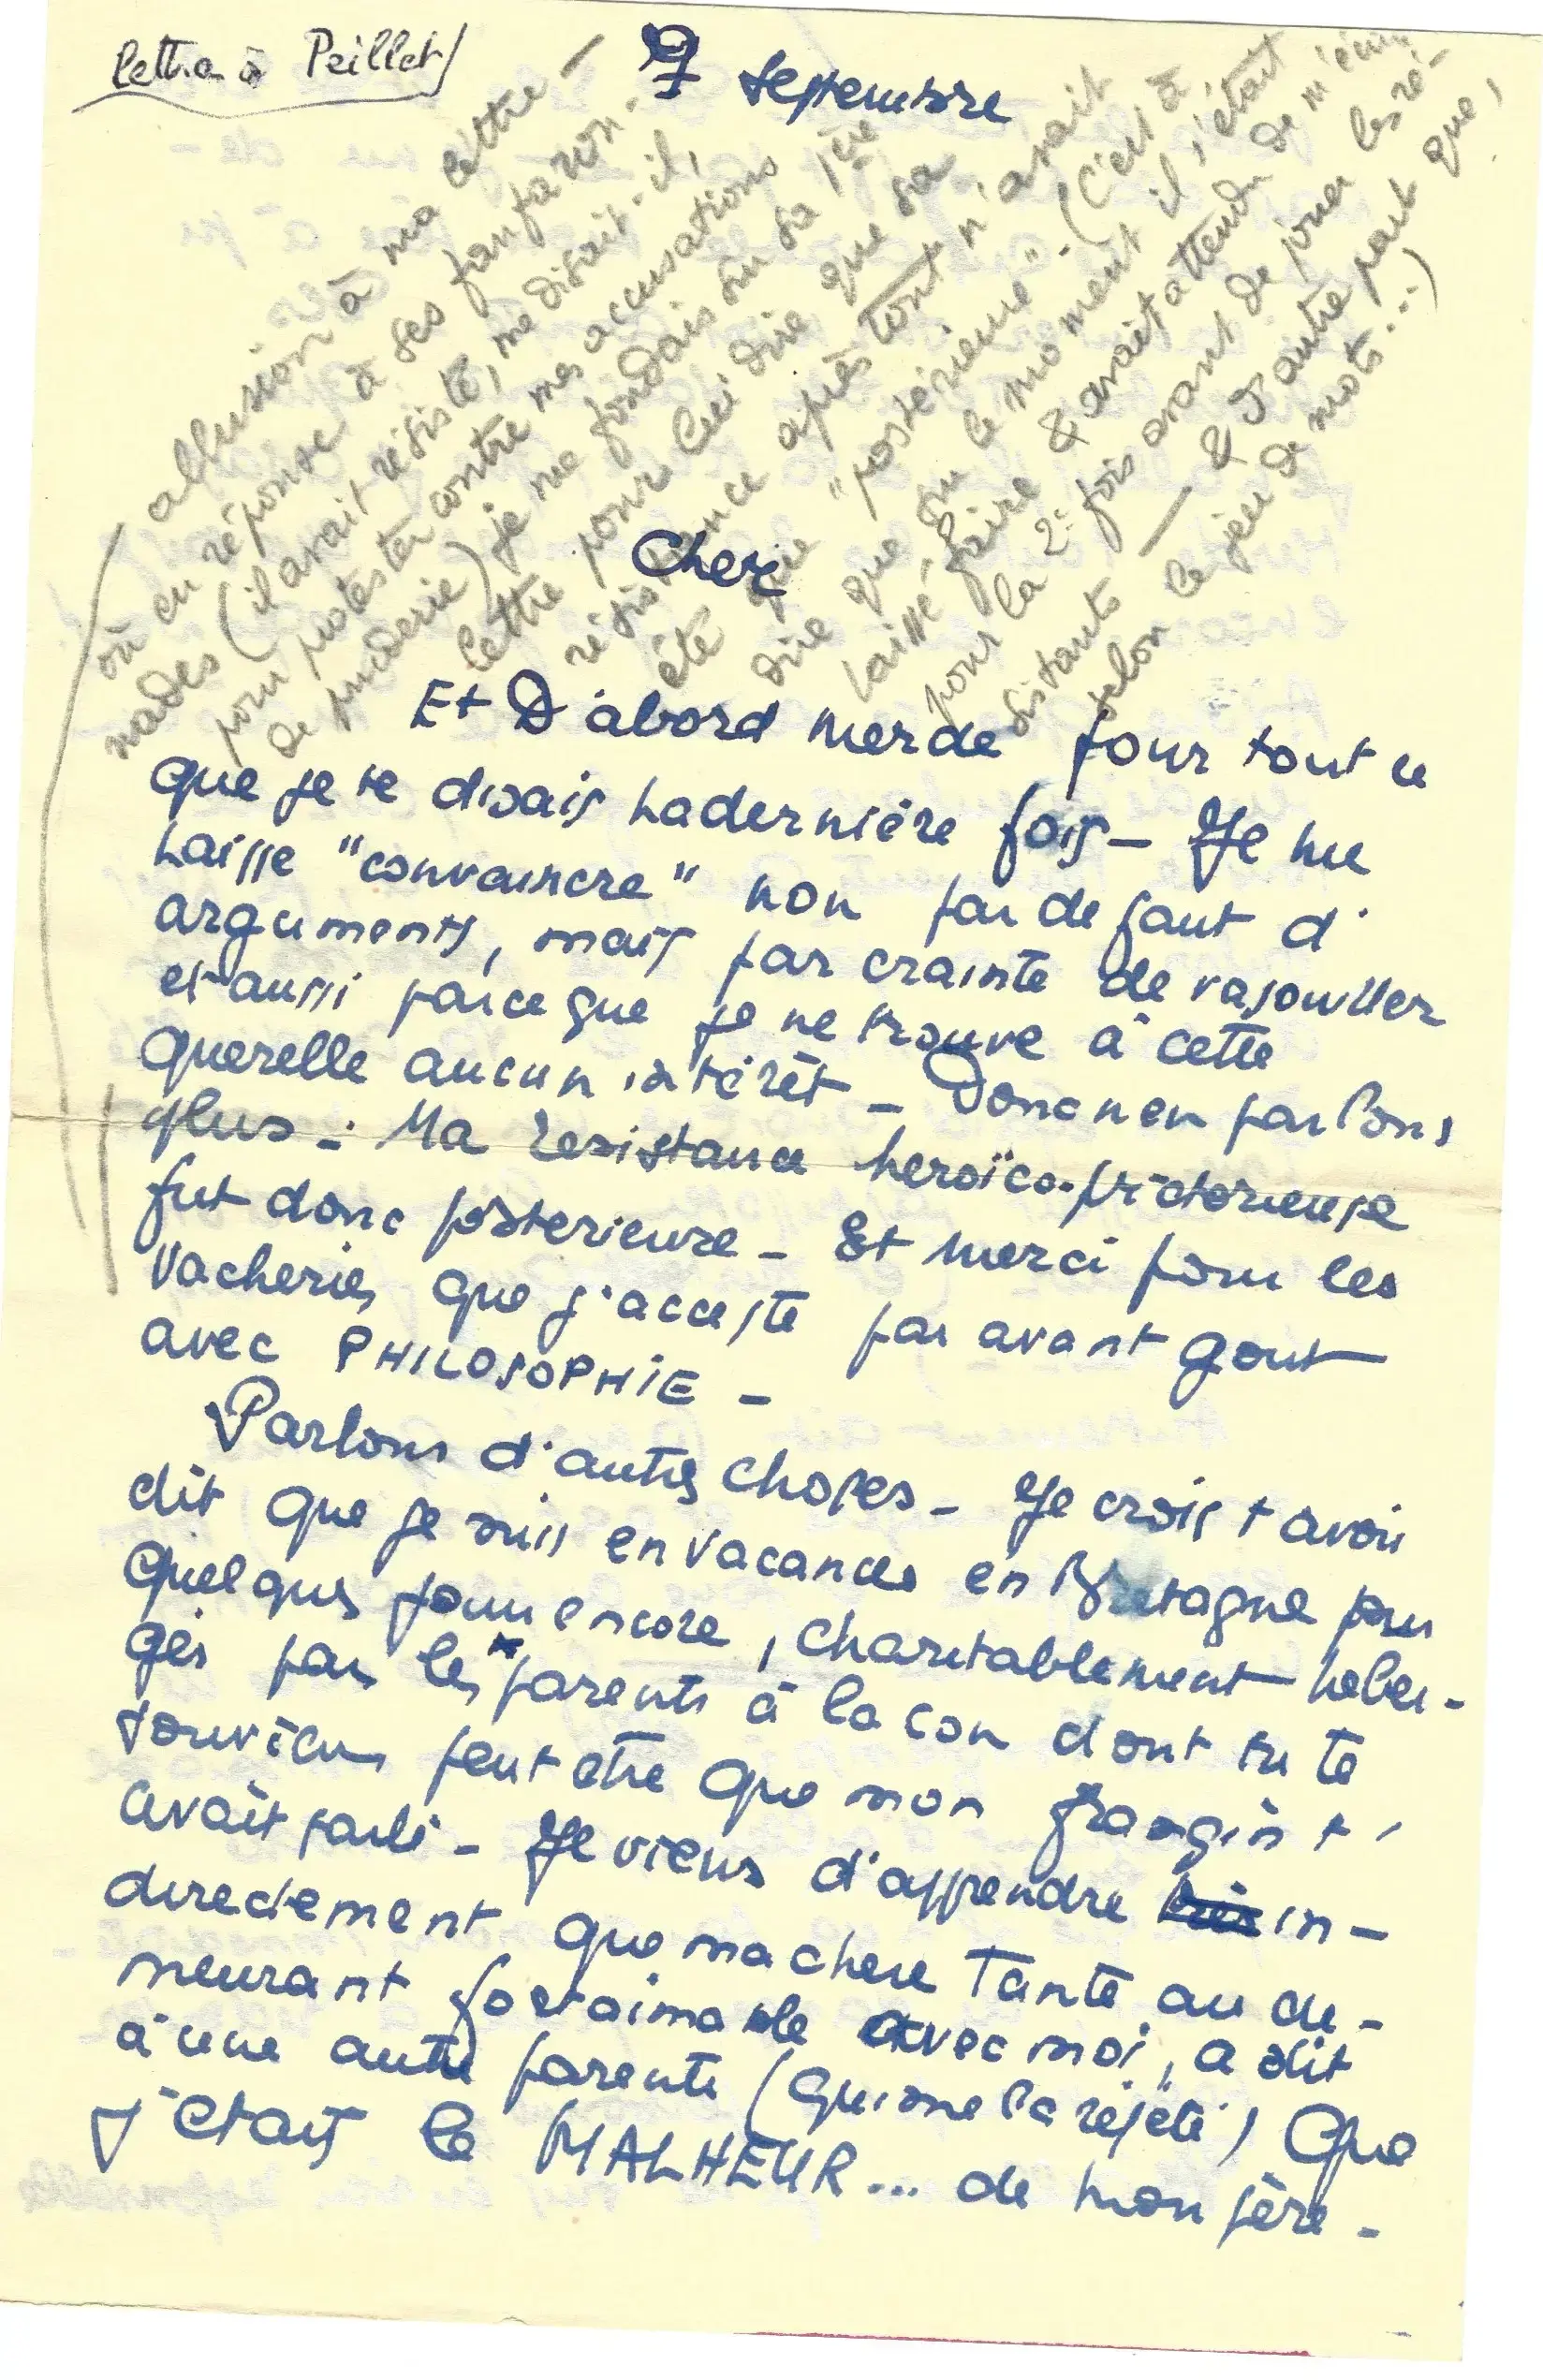 lettre à Peillet/
9 septembre
allusion à ma lettre –
où en réponse à ses fanfaron-
nades (il avait résisté, me disait-il,
pour protester contre mes accusations
de                ) je me fondais sur sa 1ère
lettre pour lui dire que sa
résistance après tout n'avait
été que "postérieure". (C'est à
dire que sur ce moment il s'était
laissé faire & avait attendu de m'écrire
pour la 2e fois avant de jouer les ré-
sistants — & d'autre part que,
selon le jeu de mots...)
Cher
Et D'abord merde pour tout ce
que je te disais la dernière fois – Je me
laisse "convaincre" non par defaut d'
arguments, mais par crainte de rasouiller
et aussi parce que je ne trouve à cette
querelle aucun intérêt – Donc n'en parlons
plus –: Ma resistance heroïco-victorieuse
fut donc posterieure – Et merci pour les
Vacheries que j'accepte par avant gout
avec PHILOSOPHIE –
Parlons d'autres choses – Je crois t avoir
dit que je suis en vacances en Bretagne pour
quelques jours encore, charitablement heber-
gés par les parents à la con dont tu te
souviens peut etre que mon frangin t'
avait parlé – Je viens d'apprendre in-
directement que ma chere Tante au de-
meurant fort aimable avec moi, a dit
à une autre parente (qui me l'a répété) que
j'étais le MALHEUR... de mon père –